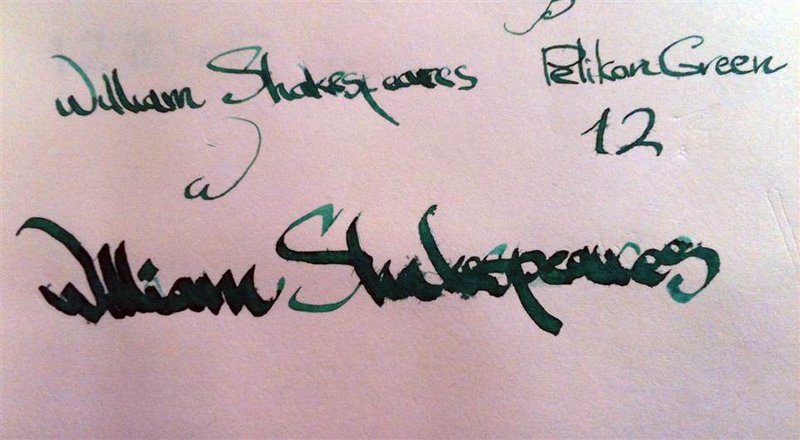 William Shakespeares
Pelikan Green
12
William Shakespeares